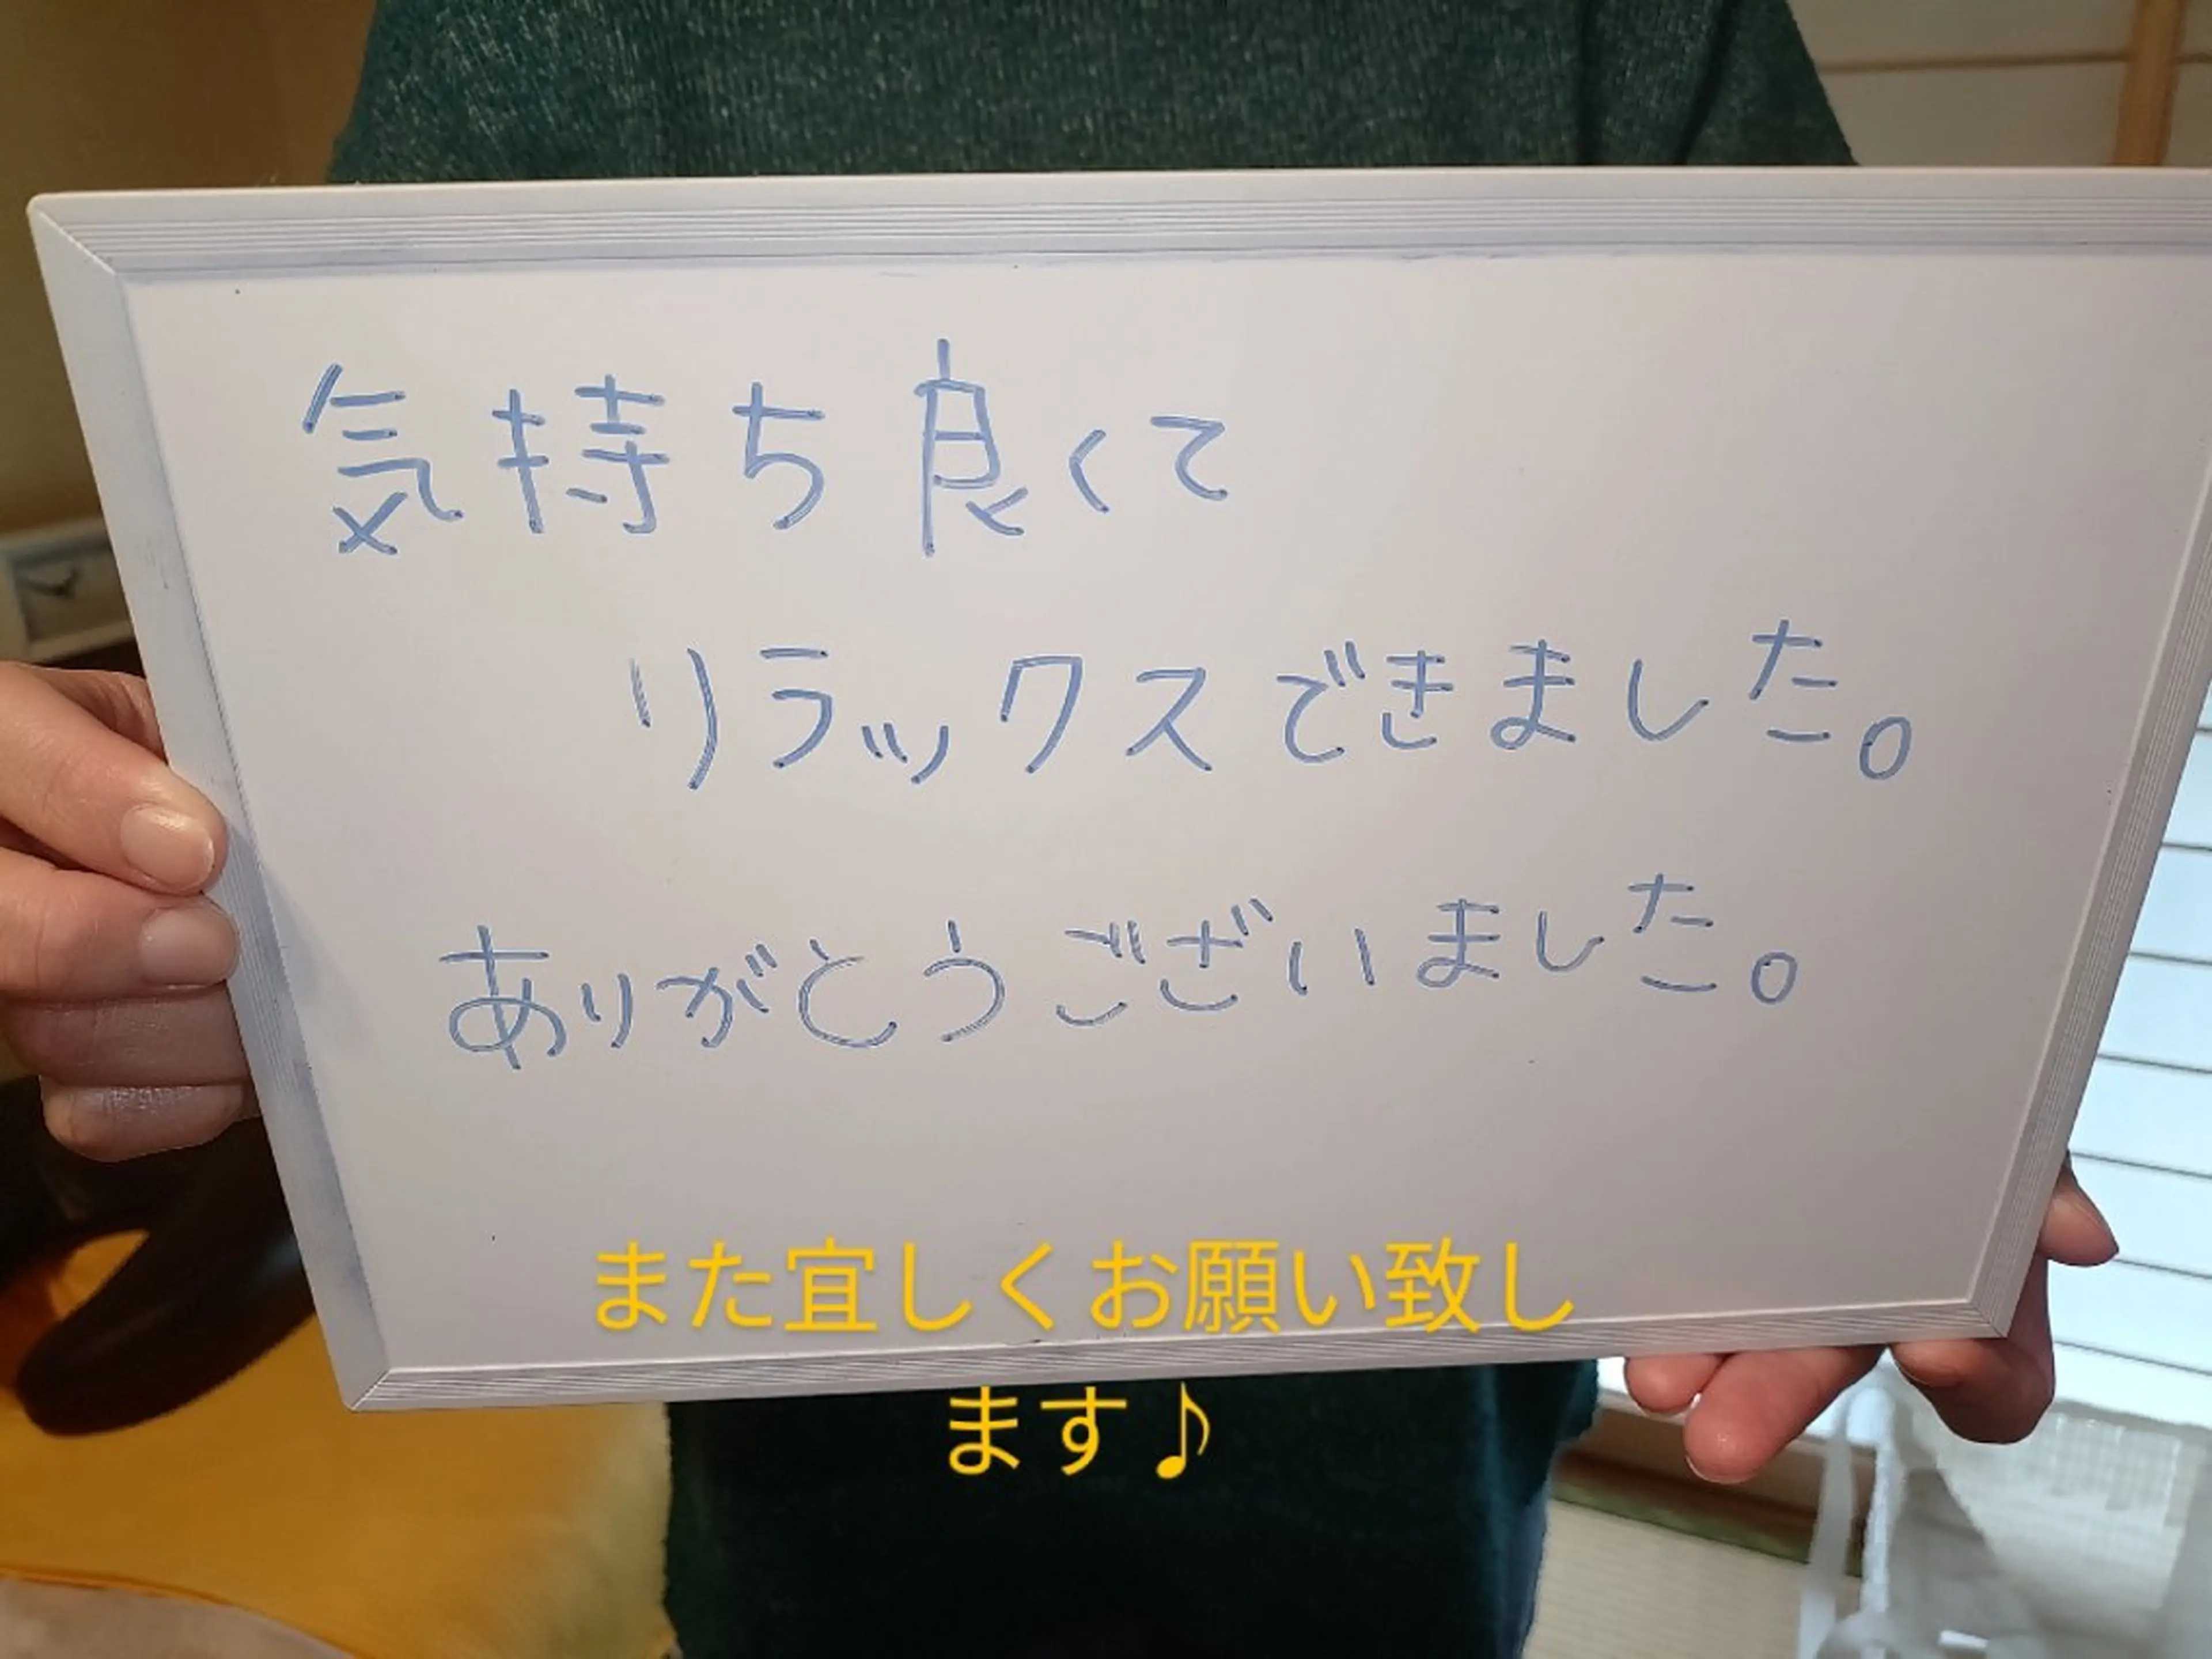 気持ち良くて
リラックスできました。
ありがとうございました。
また宜しくお願い致し
ます♪